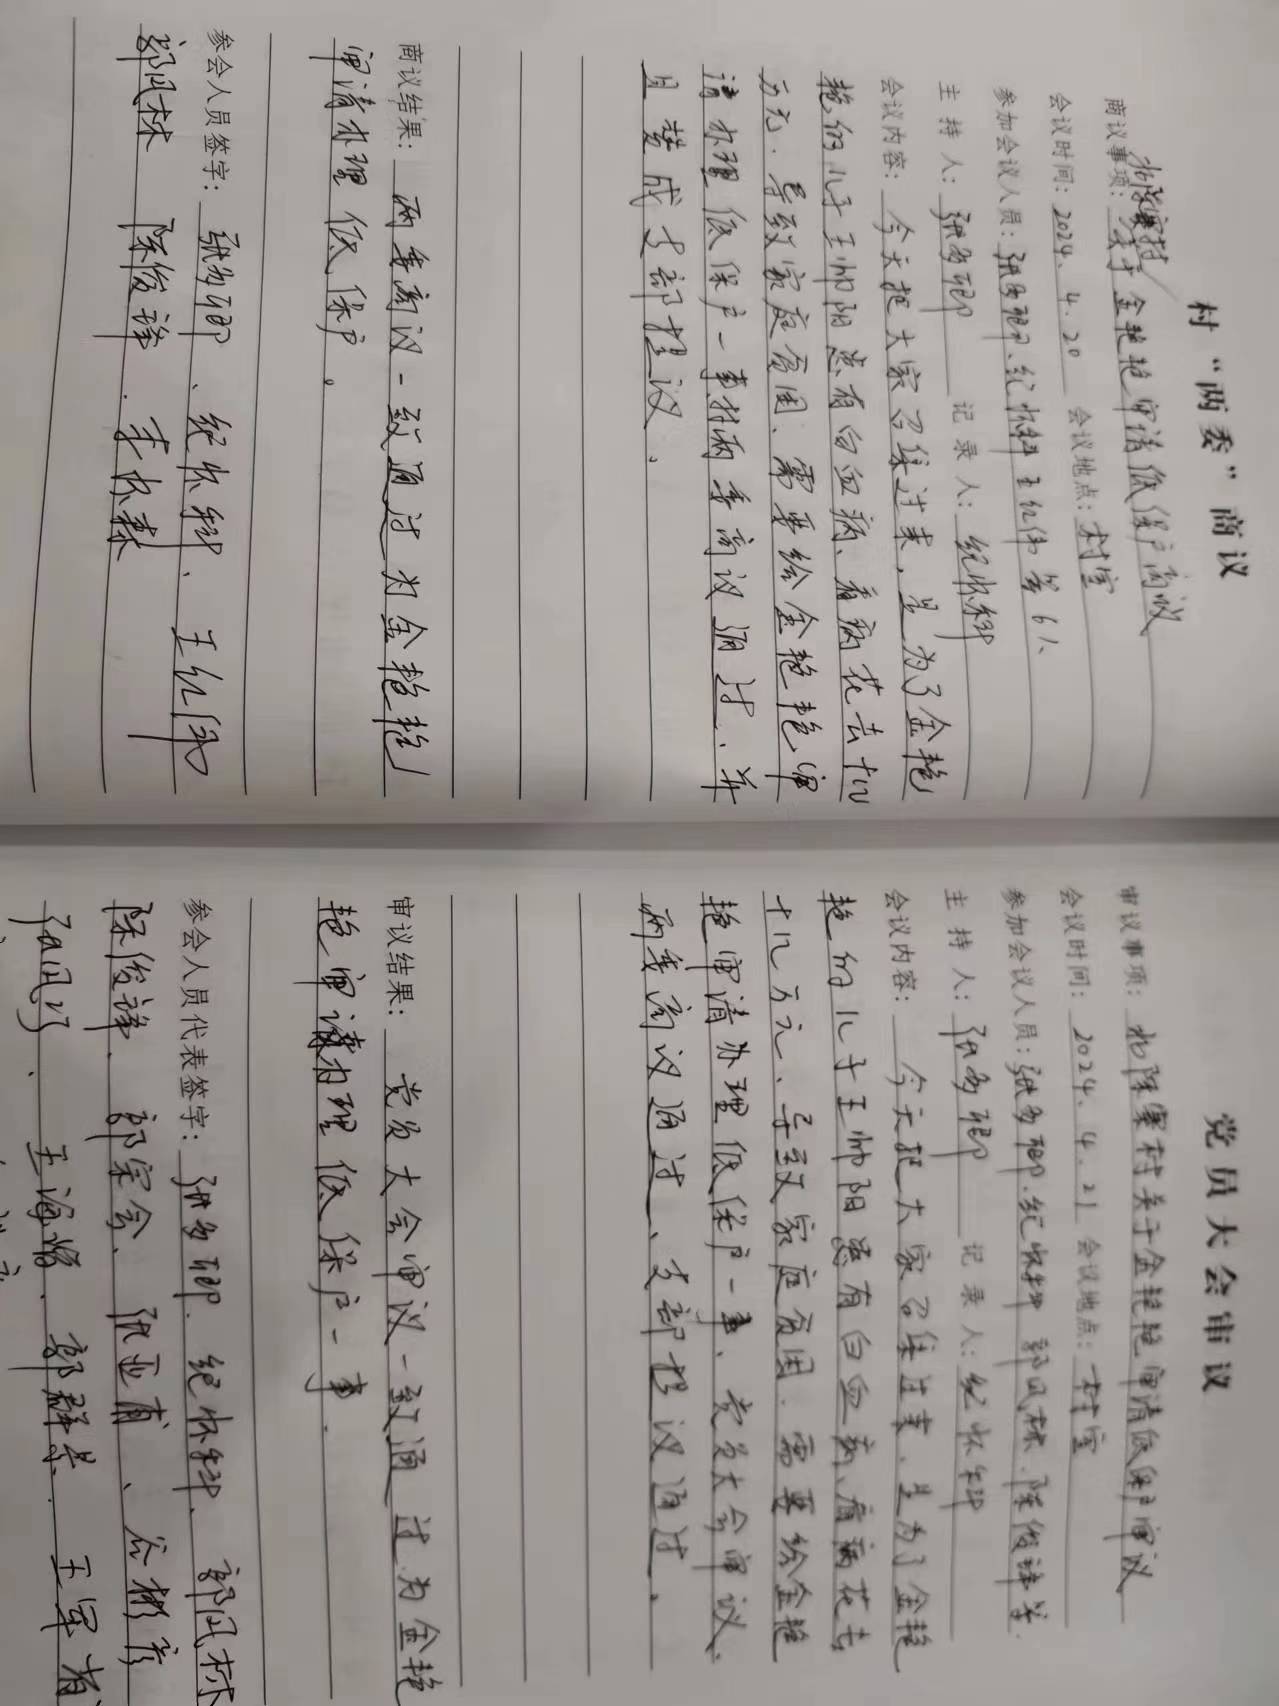 村“两委”商议
商议事项：北陈寨村关于金艳艳申请低保户商议
会议时间：2024.4.20 会议地点：村室
参加会议人员：张多聊、纪怀科 王红伟等6人
主持人：张多聊 记录人：纪怀科
会议内容：今天把大家召集过来，是为了金艳
艳的儿子王帅阳患有白血病、看病花去十几
万元．导致家庭贫困、需要给金艳艳申
请办理低保户一事村两委商议通过．并
且赞成支部提议．
商议结果：两委商议一致通过为金艳艳
申请办理低保户。
参会人员签字：张多聊、纪怀科、王红伟
郭风林 陈俊锋．李怀森
党员大会审议
审议事项：北陈寨村关于金艳艳申请低保户审议
会议时间：2024.4.21 会议地点：村室
参加会议人员：张多聊．纪怀科 郭风林．陈俊锋等．
主持人：张多聊 记录人：纪怀科
会议内容：今天把大家召集过来．是为了金艳
艳的儿子王帅阳患有白血病、看病花去
十几万元、导致家庭贫困．需要给金艳
艳申请办理低保户一事、党员大会审议、
两委商议通过、支部提议通过．
审议结果：党员大会审议一致通过为金艳
艳申请办理低保户一事．
参会人员代表签字：张多聊．纪怀科、郭风林
陈俊锋、郭宗会、张亚甫、谷彬彦
王海 郭群 王军